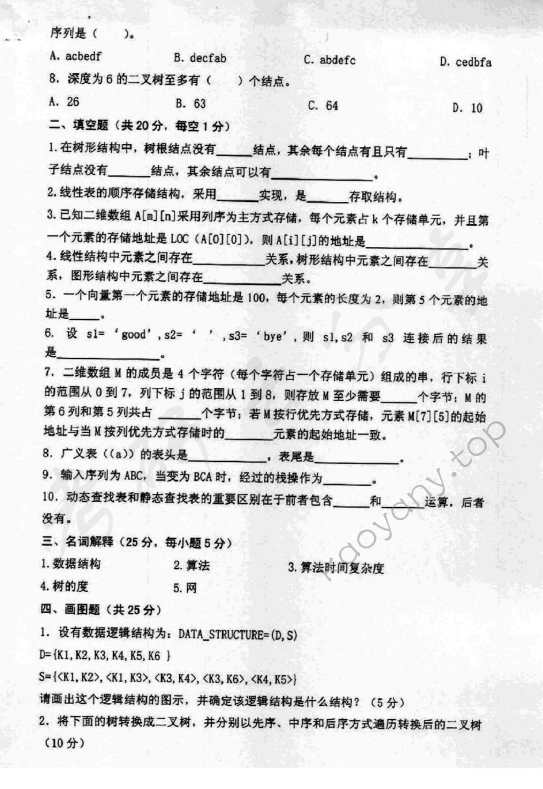 序列是（　　）。
A. acbedf　　B. decfab　　C. abdefc　　D. cedbfa
8．深度为 6 的二叉树至多有（　　）个结点。
A. 26　　B. 63　　C. 64　　D. 10
二、填空题（共20分，每空1分）
1.在树形结构中，树根结点没有______结点，其余每个结点有且只有__________；叶
子结点没有_______结点，其余结点可以有_________________。
2.线性表的顺序存储结构，采用_______实现，是_______存取结构。
3.已知二维数组 A[m][n]采用列序为主方式存储，每个元素占 k 个存储单元，并且第
一个元素的存储地址是 LOC（A[0][0]），则 A[i][j]的地址是_________________。
4.线性结构中元素之间存在____________关系，树形结构中元素之间存在________关
系，图形结构中元素之间存在_____________关系。
5．一个向量第一个元素的存储地址是 100，每个元素的长度为 2，则第 5 个元素的地
址是_____。
6. 设 s1= ‘good’,s2= ‘ ’,s3= ‘bye’,则 s1,s2 和 s3 连接后的结果
是_________________。
7．二维数组 M 的成员是 4 个字符（每个字符占一个存储单元）组成的串，行下标 i
的范围从 0 到 7，列下标 j 的范围从 1 到 8，则存放 M 至少需要______个字节；M 的
第 6 列和第 5 列共占 _______个字节；若 M 按行优先方式存储，元素 M[7][5]的起始
地址与当 M 按列优先方式存储时的_______元素的起始地址一致。
8．广义表（（a））的表头是_____________，表尾是_____________。
9．输入序列为 ABC，当变为 BCA 时，经过的栈操作为________。
10．动态查找表和静态查找表的重要区别在于前者包含______和______运算，后者
没有。
三、名词解释（25分，每小题5分）
1.数据结构　　2.算法　　3.算法时间复杂度
4.树的度　　5.网
四、画图题（共25分）
1．设有数据逻辑结构为：DATA_STRUCTURE=(D,S)
D={K1,K2,K3,K4,K5,K6 }
S={<K1,K2>,<K1,K3>,<K3,K4>,<K3,K6>,<K4,K5>}
请画出这个逻辑结构的图示，并确定该逻辑结构是什么结构？（5分）
2．将下面的树转换成二叉树，并分别以先序、中序和后序方式遍历转换后的二叉树
（10分）